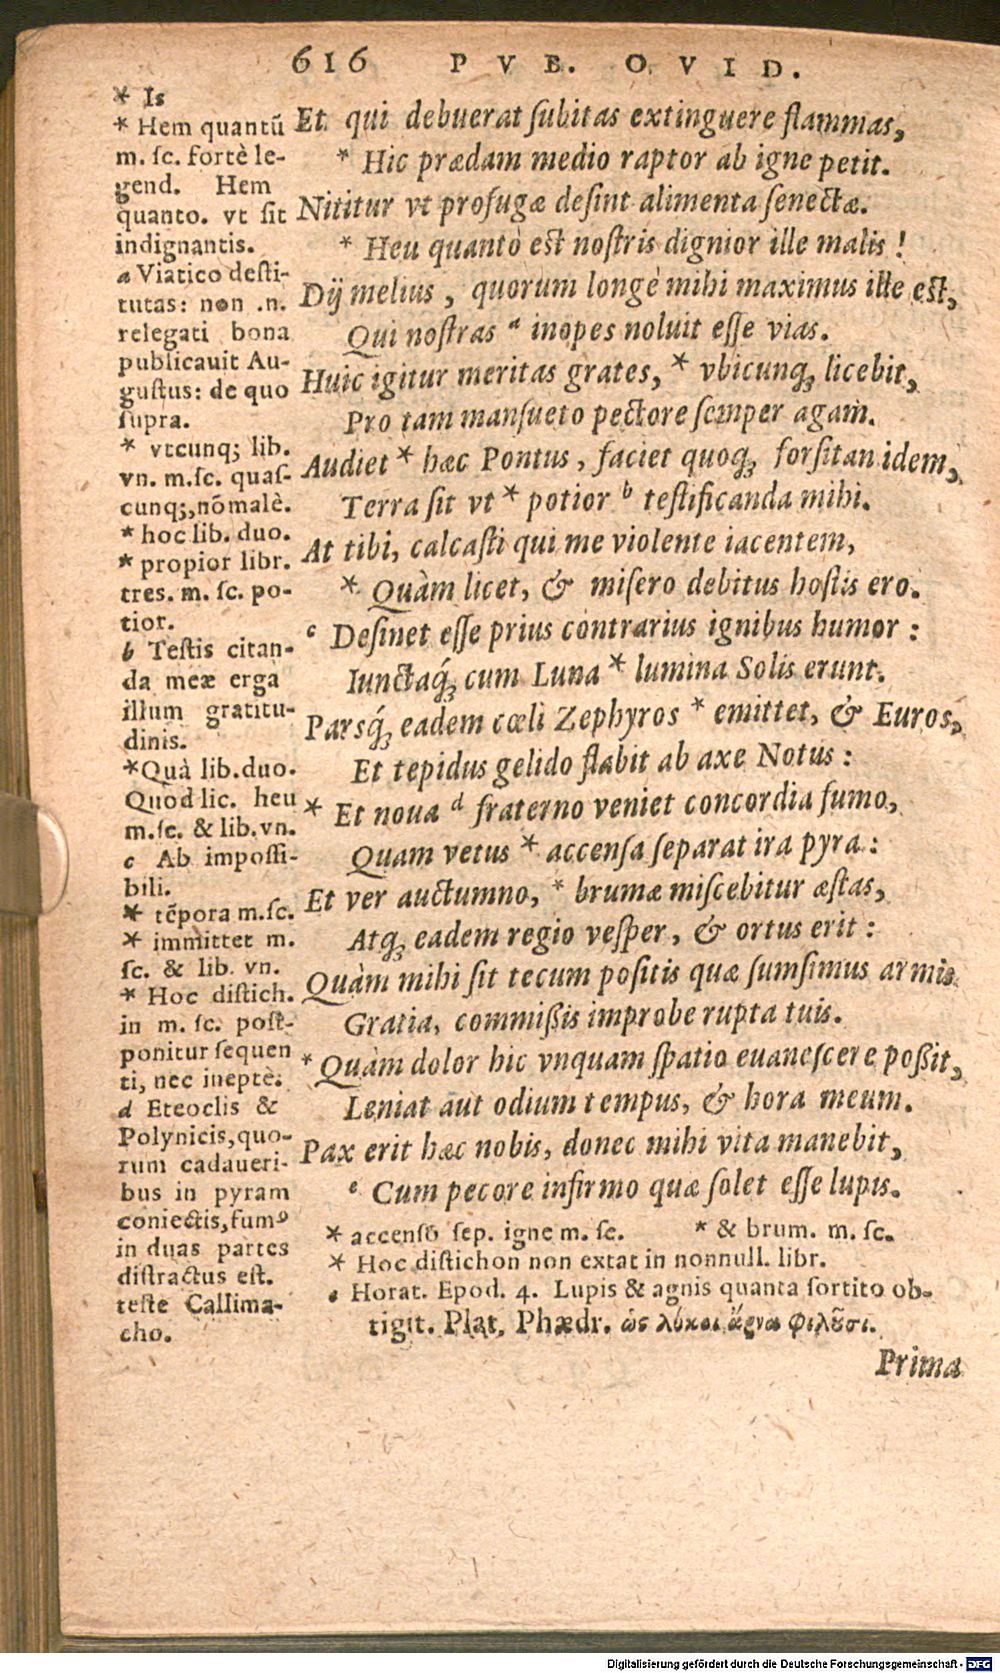 616 PVB. OVID.
* Is
* Hem quantũ
m. ſc. fortè le-
gend. Hem
quanto. vt ſit
indignantis.
a Viatico deſti-
tutas: non .n.
relegati bona
publicauit Au-
guſtus: de quo
ſupra.
* vtcunq; lib.
vn. m.ſc. quaſ-
cunq;, nõ malè.
* hoc lib. duo.
* propior libr.
tres. m. ſc. po-
tior.
b Teſtis citan-
da meæ erga
illum gratitu-
dinis.
*Quà lib.duo.
Quod lic. heu
m.ſc. & lib.vn.
c Ab impoſſi-
bili.
* tẽpora m.ſc.
* immittet m.
ſc. & lib. vn.
* Hoc diſtich.
in m. ſc. poſt-
ponitur ſequen
ti, nec ineptè.
d Eteoclis &
Polynicis, quo-
rum cadaueri-
bus in pyram
coniectis, fumꝰ
in duas partes
diſtractus eſt.
teſte Callima-
cho.
Et qui debuerat ſubitas extinguere flammas,
* Hic prædam medio raptor ab igne petit.
Nititur vt profugæ deſint alimenta ſenectæ.
* Heu quantò eſt noſtris dignior ille malis !
Dij melius, quorum longè mihi maximus ille eſt,
Qui noſtras a inopes noluit eſſe vias.
Huic igitur meritas grates, * vbicunq; licebit,
Pro tam manſueto pectore ſemper agam.
Audiet * hæc Pontus, faciet quoq; forſitan idem,
Terra ſit vt * potior b teſtificanda mihi.
At tibi, calcaſti qui me violente iacentem,
* Quàm licet, & miſero debitus hoſtis ero.
c Deſinet eſſe prius contrarius ignibus humor :
Iunctaq́; cum Luna * lumina Solis erunt.
Parsq́; eadem cœli Zephyros * emittet, & Euros,
Et tepidus gelido flabit ab axe Notus :
* Et noua d fraterno veniet concordia fumo,
Quam vetus * accenſa ſeparat ira pyra :
Et ver auctumno, * brumæ miſcebitur æſtas,
Atq; eadem regio veſper, & ortus erit :
Quàm mihi ſit tecum poſitis quæ ſumſimus armis
Gratia, commißis improbe rupta tuis.
* Quàm dolor hic vnquam ſpatio euaneſcere poßit,
Leniat aut odium tempus, & hora meum.
Pax erit hæc nobis, donec mihi vita manebit,
e Cum pecore infirmo quæ ſolet eſſe lupis.
* accenſo ſep. igne m. ſc. * & brum. m. ſc.
* Hoc diſtichon non extat in nonnull. libr.
e Horat. Epod. 4. Lupis & agnis quanta ſortito ob-
tigit. Plat. Phædr. ὡς λύκοι ἄρνα φιλοῦσι.
Prima
Digitalisierung gefördert durch die Deutsche Forschungsgemeinschaft - DFG